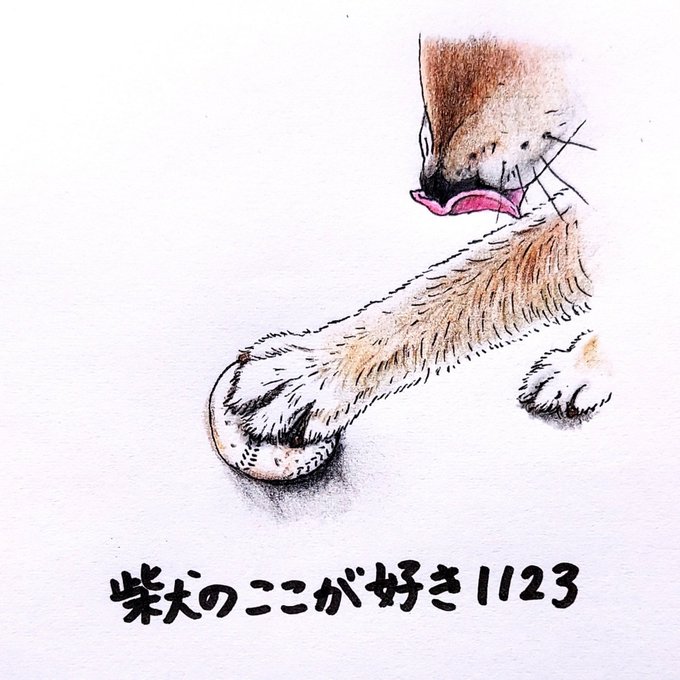 柴犬のここが好き1123